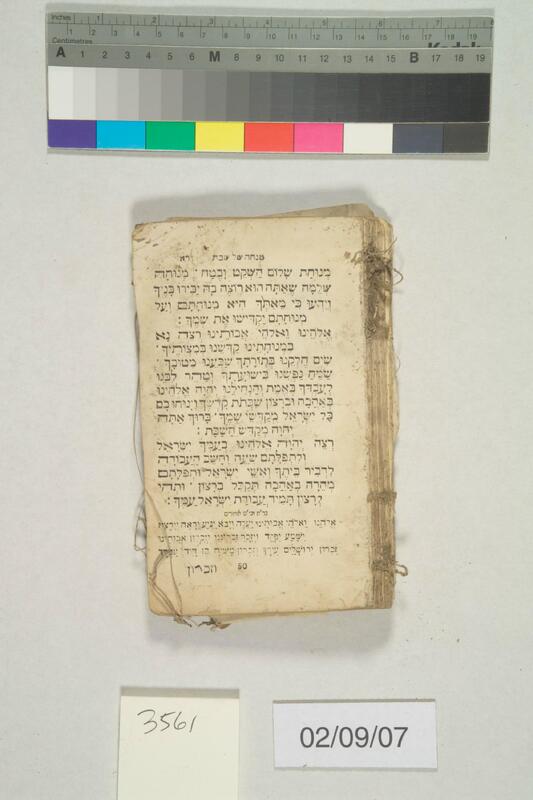 Inches 1 2 3 4 5 6 7 8
Centimetres 1 2 3 4 5 6 7 8 9 10 11 12 13 14 15 16 17 18 19
Kodak
A 1 2 3 4 5 6 M 8 9 10 11 12 13 14 15 B 17 18 19
מנחה של שבת רא
מְנוּחַת שָׁלוֹם הַשְׁקֵט וָבֶטַח מְנוּחָה
שְׁלֵמָה שֶׁאַתָּה הוּא רוֹצֶה בָּהּ יַכִּירוּ בָנֶיךָ
וְיֵדְעוּ כִּי מֵאִתְּךָ הִיא מְנוּחָתָם וְעַל
מְנוּחָתָם יַקְדִּישׁוּ אֶת שְׁמֶךָ:
אֱלֹהֵינוּ וֵאלֹהֵי אֲבוֹתֵינוּ רְצֵה נָא
בִמְנוּחָתֵינוּ קַדְּשֵׁנוּ בְּמִצְוֹתֶיךָ
שִׂים חֶלְקֵנוּ בְּתוֹרָתֶךָ שַׂבְּעֵנוּ מִטּוּבֶךָ
שַׂמֵּחַ נַפְשֵׁנוּ בִּישׁוּעָתֶךָ וְטַהֵר לִבֵּנוּ
לְעָבְדְּךָ בֶּאֱמֶת וְהַנְחִילֵנוּ יְהוָה אֱלֹהֵינוּ
בְּאַהֲבָה וּבְרָצוֹן שַׁבַּת קָדְשֶׁךָ וְיָנוּחוּ בָם
כָּל יִשְׂרָאֵל מְקַדְּשֵׁי שְׁמֶךָ בָּרוּךְ אַתָּה
יְהוָה מְקַדֵּשׁ הַשַּׁבָּת:
רְצֵה יְהוָה אֱלֹהֵינוּ בְּעַמְּךָ יִשְׂרָאֵל
וְלִתְפִלָּתָם שְׁעֵה וְהָשֵׁב הָעֲבוֹדָה
לִדְבִיר בֵּיתֶךָ וְאִשֵּׁי יִשְׂרָאֵל וּתְפִלָּתָם
מְהֵרָה בְּאַהֲבָה תְקַבֵּל בְּרָצוֹן וּתְהִי
לְרָצוֹן תָּמִיד עֲבוֹדַת יִשְׂרָאֵל עַמֶּךָ:
אֱלֹהֵינוּ וֵאלֹהֵי אֲבוֹתֵינוּ יַעֲלֶה וְיָבֹא יַגִּיעַ יֵרָאֶה וְיֵרָצֶה
יִשָּׁמַע יִפָּקֵד וְיִזָּכֵר זִכְרוֹנֵנוּ וְזִכְרוֹן אֲבוֹתֵינוּ
זִכְרוֹן יְרוּשָׁלַיִם עִירָךְ וְזִכְרוֹן מָשִׁיחַ בֶּן דָּוִד עַבְדָּךְ
50 וזכרון
3561
02/09/07